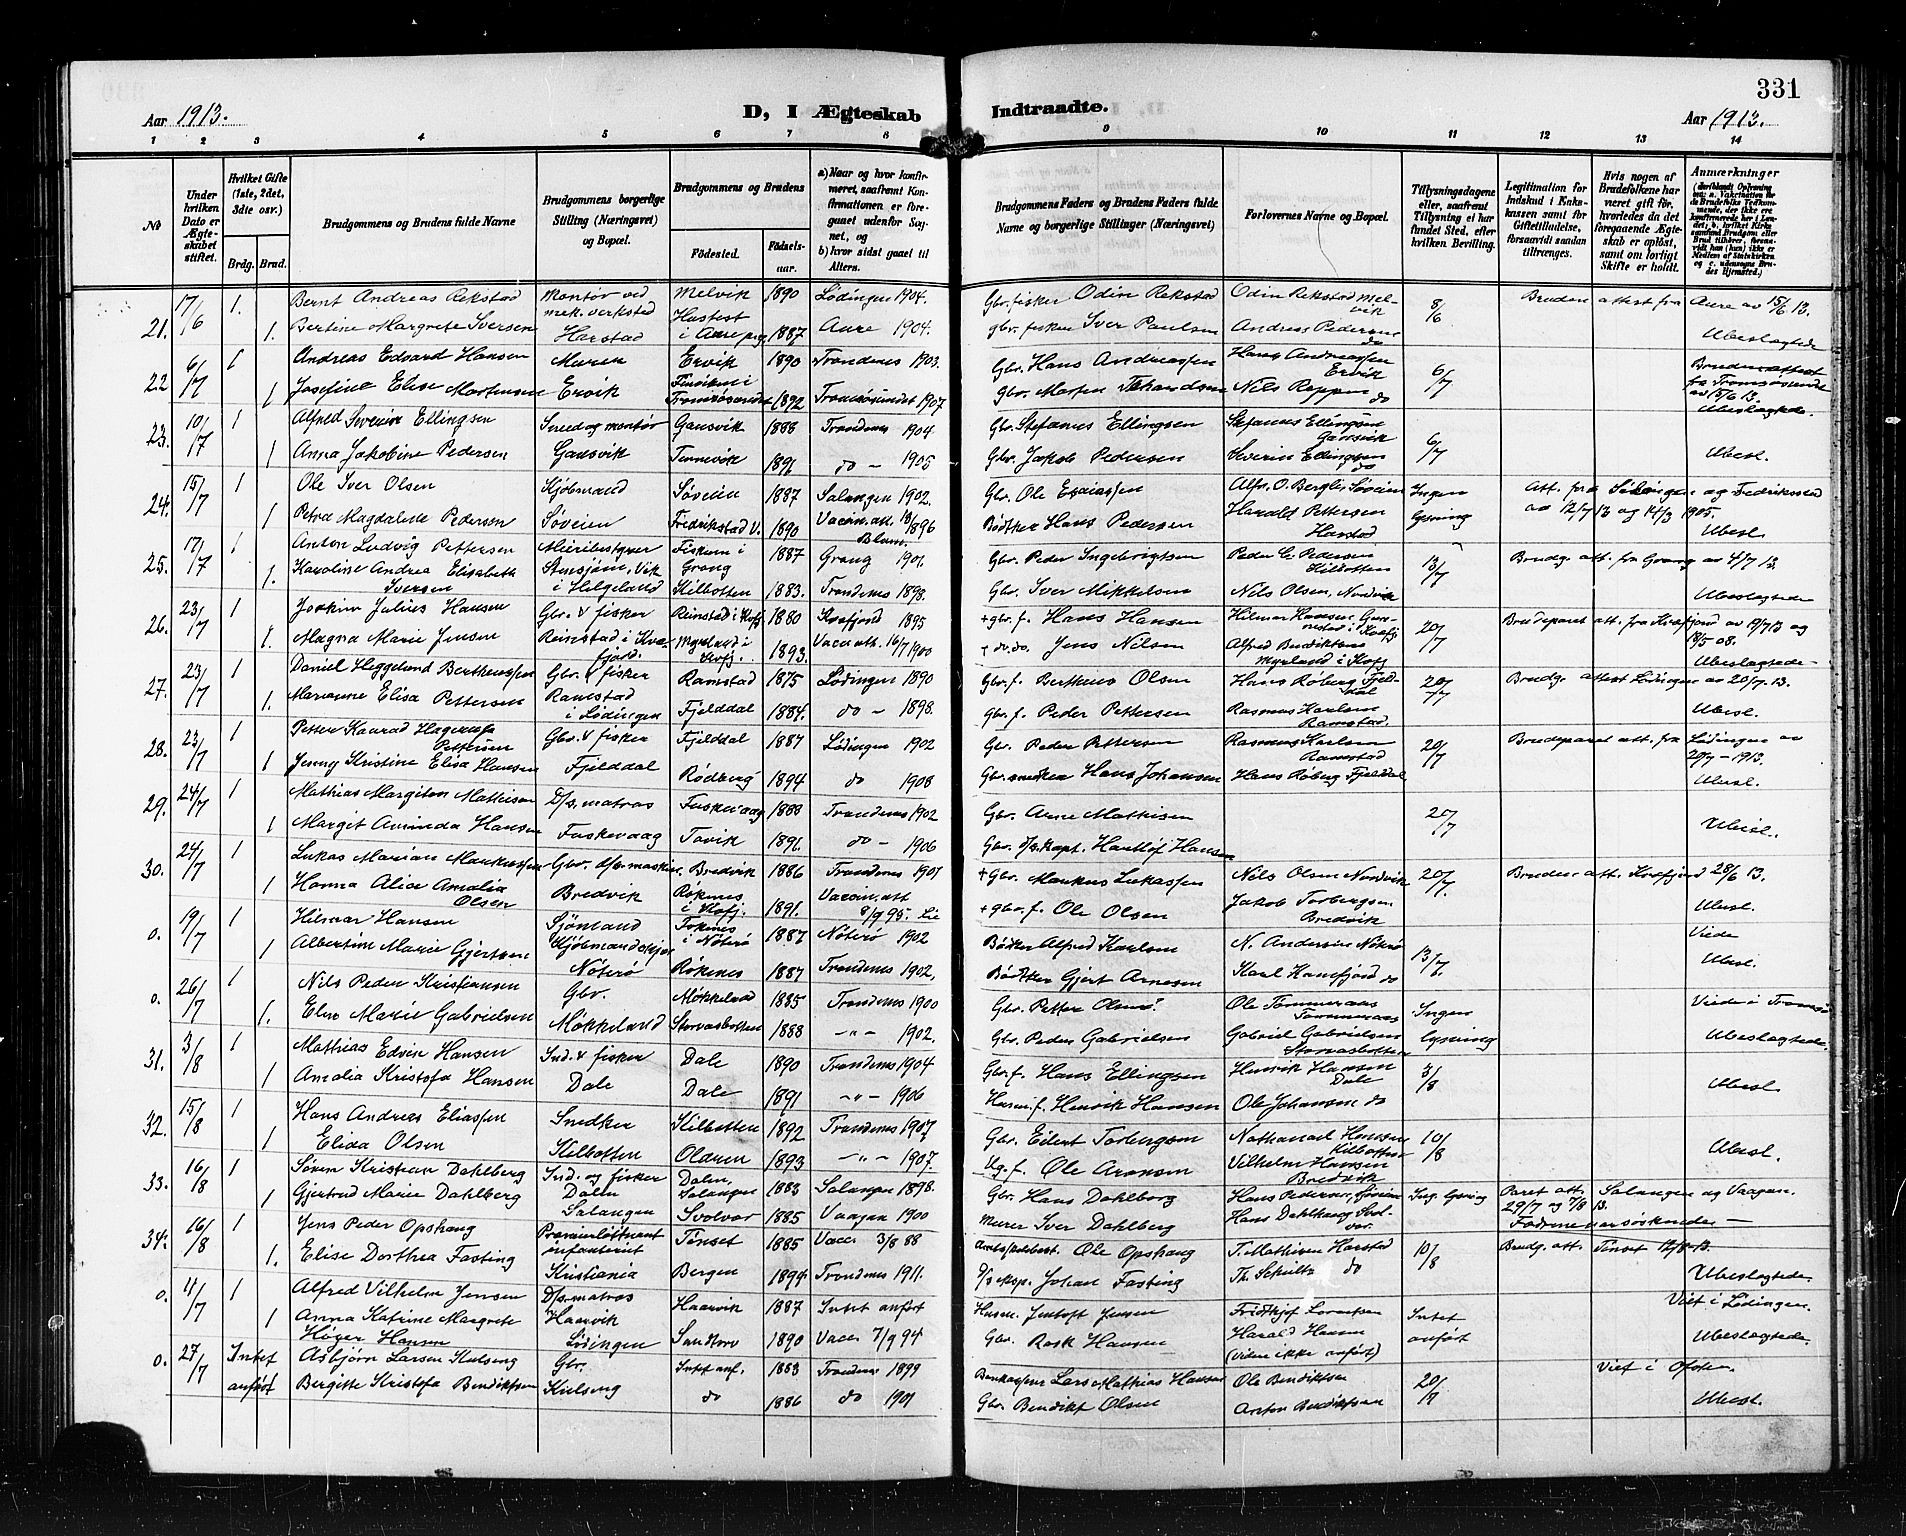 331
Aar 1913.
D, I Ægteskab Indtraadte.
Aar 1913.
1 2 3 4 5 6 7 8 9 10 11 12 13 14
No
Under hvilken Dato er Ægteskabet stiftet.
Hvilket Gifte (1ste, 2det, 3dte osv.)
Brdg. Brud.
Brudgommens og Brudens fulde Navne
Brudgommens borgerlige Stilling (Næringsvei) og Bopæl.
Brudgommens og Brudens
Fødested. Fødselsaar.
a) Naar og hvor konfirmeret, saafremt Konfirmationen er foregaaet udenfor Sognet, og
b) hvor sidst gaaet til Alters.
Brudgommens Faders og Brudens Faders fulde Navne og borgerlige Stillinger (Næringsvei)
Forlovernes Navne og Bopæl.
Tillysningsdagene eller, saafremt Tillysning ei har fundet Sted, efter hvilken Bevilling.
Legitimation for Indskud i Enkekassen samt for Giftetilladelse, forsaavidt saadan tiltrænges.
Hvis nogen af Brudefolkene har været gift før, hvorledes da det foregaaende Ægteskab er opløst, samt om lovligt Skifte er holdt.
Anmærkninger
21. 17/6 1. Bernt Andreas Rekstad Montør ved mek. verksted Melvik 1890 Lødingen 1904. Gbr. fisker Odin Rekstad Odin Rekstad Melvik 8/6 Bruden attest fra Aure av 15/6 13.
1. Bertine Margrete Iversen Harstad i Aure 1887 Aure 1904. gbr. fisker Iver Paulsen Andreas Pedersen do Ubeslagtede
22 6/7 1 Andreas Edvard Hansen Murer Ervik 1890 Trondenes 1903. Gbr. Hans Andreassen Hans Andreassen Ervik 6/7 Bruden attest fra Tromsøsundet av 18/6 13.
1 Josefine Elise Mortensen Ervik i Tromsøsundet 1892 Tromsøsundet 1907 Gbr. Morten Nils Reppen do Ubeslagtede.
23. 10/7 1 Alfred Severin Ellingsen Smed og montør Gansvik 1888 Trondenes 1904 Gbr. Stefanus Ellingsen Stefanus Ellingsen Gansvik 6/7
1 Anna Jakobine Pedersen Gansvik Tennevik 1891 do - 1905 Gbr. Jakob Pedersen Severin Ellingsen do Ubesl.
24. 15/7 1 Ole Iver Olsen Kjøbmand Søveien 1887 Salangen 1902. Gbr. Ole Esaiassen Alfr. O. Berglis Søveien Ingen lysning Att. fra Lødingen og Fredriksstad
1 Petra Magdalene Pedersen Søveien Fredrikstad V. 1890 Vaccin. att. Bødker Hans Pedersen Harald Pettersen Harstad av 12/7 13 og 14/3 1905. Ubesl.
25. 17/7 1 Anton Ludvig Pettersen Meieribestyrer Fiskum i Grong 1887 Grong 1901. Gbr. Peder Ingebrigtsen Peder C. Pedersen Kilbotten 13/7 Brudg. att. fra Grong av 4/7 13
1. Karoline Andrea Elisabeth Iversen i Helgeland Kilbotten 1883. Trondenes 1898. Gbr. Iver Mikkelsen Nils Olsen, Nordvik Ubeslagtede
26. 23/7 1 Joakim Julius Hansen Gbr. & fisker Reinstad i Kvfj 1880 Kvæfjord 1895 + gbr. f. Hans Hansen Hilmar Hansen, i Kvæfj 20/7 Brudeparet att. fra Kvæfjord av 19/7 13 og
1. Magna Marie Jensen Reinstad i Kvæfjord Myrland i Kvfj. 1893. Vacc. att. 16/7 1900 + do. do. Jens Nilsen Alfred Bendiktsen Myrland i Kvfj 18/5 08. Ubeslagtede-
27. 23/7 1 Daniel Heggelund Bertheussen Gbr. & fisker Ramstad 1875 Lødingen 1890 Gbr. f. Bertheus Olsen Hans Røberg Fjelddal 20/7 Brudg. attest Lødingen av 20/7. 13.
1. Marianne Elisa Pettersen Ramstad i Lødingen Fjelddal 1884. do - 1898. Gbr. f. Peder Pettersen Rasmus Karlsen Ramstad. Ubesl.
28. 23/7 1 Petter Konrad Hagerup Pettersen Gbr. & fisker Fjelddal 1887 Lødingen 1902 Gbr. Peder Pettersen Rasmus Karlsen Ramstad 20/7 Brudeparet att. fra Lødingen av
1 Jenny Kristine Elisa Hansen Fjelddal Rødberg 1894 do 1908 Gbr. snedker Hans Johansen Hans Røberg Fjelddal 20/7 - 1913. Ubesl.
29. 24/7 1 Mathias Margiton Mathisen D/s. matros Fuskevaag 1888 Trondenes 1902 Gbr. Arne Mathisen 20/7
1 Margit Aminda Hansen Fuskevaag Tovik 1891. do - 1906 Gbr. d/s. kapt. Hartlof Hansen Ubesl.
30. 24/7 1 Lukas Marian Markussen Gbr. d/s. maskin. Bredvik 1886 Trondenes 1901 + Gbr. Markus Lukassen Nils Olsen Nordvik 20/7. Bruden att. Kvæfjord 28/6 13.
1 Hanna Alice Amalia Olsen Bredvik Røkenes i Kvfj. 1891. Vaccin. att 8/9 95. + gbr. f. Ole Olsen Jakob Torbergsen Bredvik Ubesl.
0. 19/7 1 Hilmar Hansen Sjømand i Nøterø 1887 Nøterø 1902 Bødker Alfred Karlsen N. Andersen Nøterø 13/7. Viede
1 Albertine Marie Gjertsen Nøterø Røkenes 1887 Trondenes 1902. Bødtker Gjert Arnesen Karl do Ubesl.
0. 26/7 1 Nils Peder Kristiansen Gbr. Møkkeland 1885 Trondenes 1900 Gbr. Petter Olsen! Ole Tømmeraas Tømmeraas Ingen lysning Viede i Tromsø
1. Elen Marie Gabrielsen Møkkeland Storvasbotten 1888 -"- 1902. Gbr. Peder Gabrielsen Gabriel Gabrielsen Storvasbotten Ubeslagtede.
31. 3/8 1 Mathias Edvin Hansen Ind. & fisker Dale 1890 Trondenes 1904 Gbr. f. Hans Ellingsen Henrik Hansen Dale 3/8
1 Amalia Kristofa Hansen Dale Dale 1891 -"- 1906 Husm. f. Henrik Hansen Ole Johansen do Ubesl
32. 15/8 1 Hans Andreas Eliassen Snedker Kilbotten 1892 Trondenes 1907 Gbr. Eilert Torbergsen Nathanael Hanssen Kilbotten 10/8
1 Elida Olsen Kilbotten Oldren 1893 -"- 1907. Ug. f. Ole Aronsen Vilhelm Hansen Bredvik Ubesl.
33. 16/8 1 Søren Kristian Dahlberg Ind. og fisker Dalen, Salangen 1883 Salangen 1898. Gbr. Hans Dahlberg Hans Pedersen, Søveien Ing. lysning Paret att. Salangen og Vaagan.
1 Gjertrud Marie Dahlberg Dalen Salangen Svolvær 1885 Vaagan 1900 Murer Iver Dahlberg Hans Dahlberg Svolvær. 29/7 og 7/8 13.
34. 16/8 1 Jens Peder Opshaug Premierløitnant infanteriet Tønset 1885 Vacc. 3/8 88 Ole Opshaug T. Mathisen Harstad 10/8 Brudg. att. Tønset 12/8-13.
1. Elise Dorthea Fasting Kristiania Bergen 1894. Trondenes 1911. D/s exp. Johan Fasting Th. Schultz do Ubeslagtede.
0. 4/7 1 Alfred Vilhelm Jensen D/s. matros Haarvik 1887 Intet anført Husm. Jentoft Jensen Fridthjof Lorentsen Intet anført Viet i Lødingen.
1 Anna Katrine Margrete Høyer Hansen Haarvik Lødingen Sandtorv 1890 Vacc. 7/9 94 Gbr. Rask Hansen Harald Hansen (Viden ikke anført) Ubeslagtede.
0. 27/7 Intet anført Asbjørn Larsen Kulseng Gbr. Intet anf. 1883 Trondenes 1899 Lars Mathias Hansen Ole Bendiktsen 20/7 Viet i Ofoten.
Bergitte Kristofa Bendiktsen Kulseng do 1886 do 1901 Gbr. Bendikt Olsen Anton Bendiktsen Ubesl.